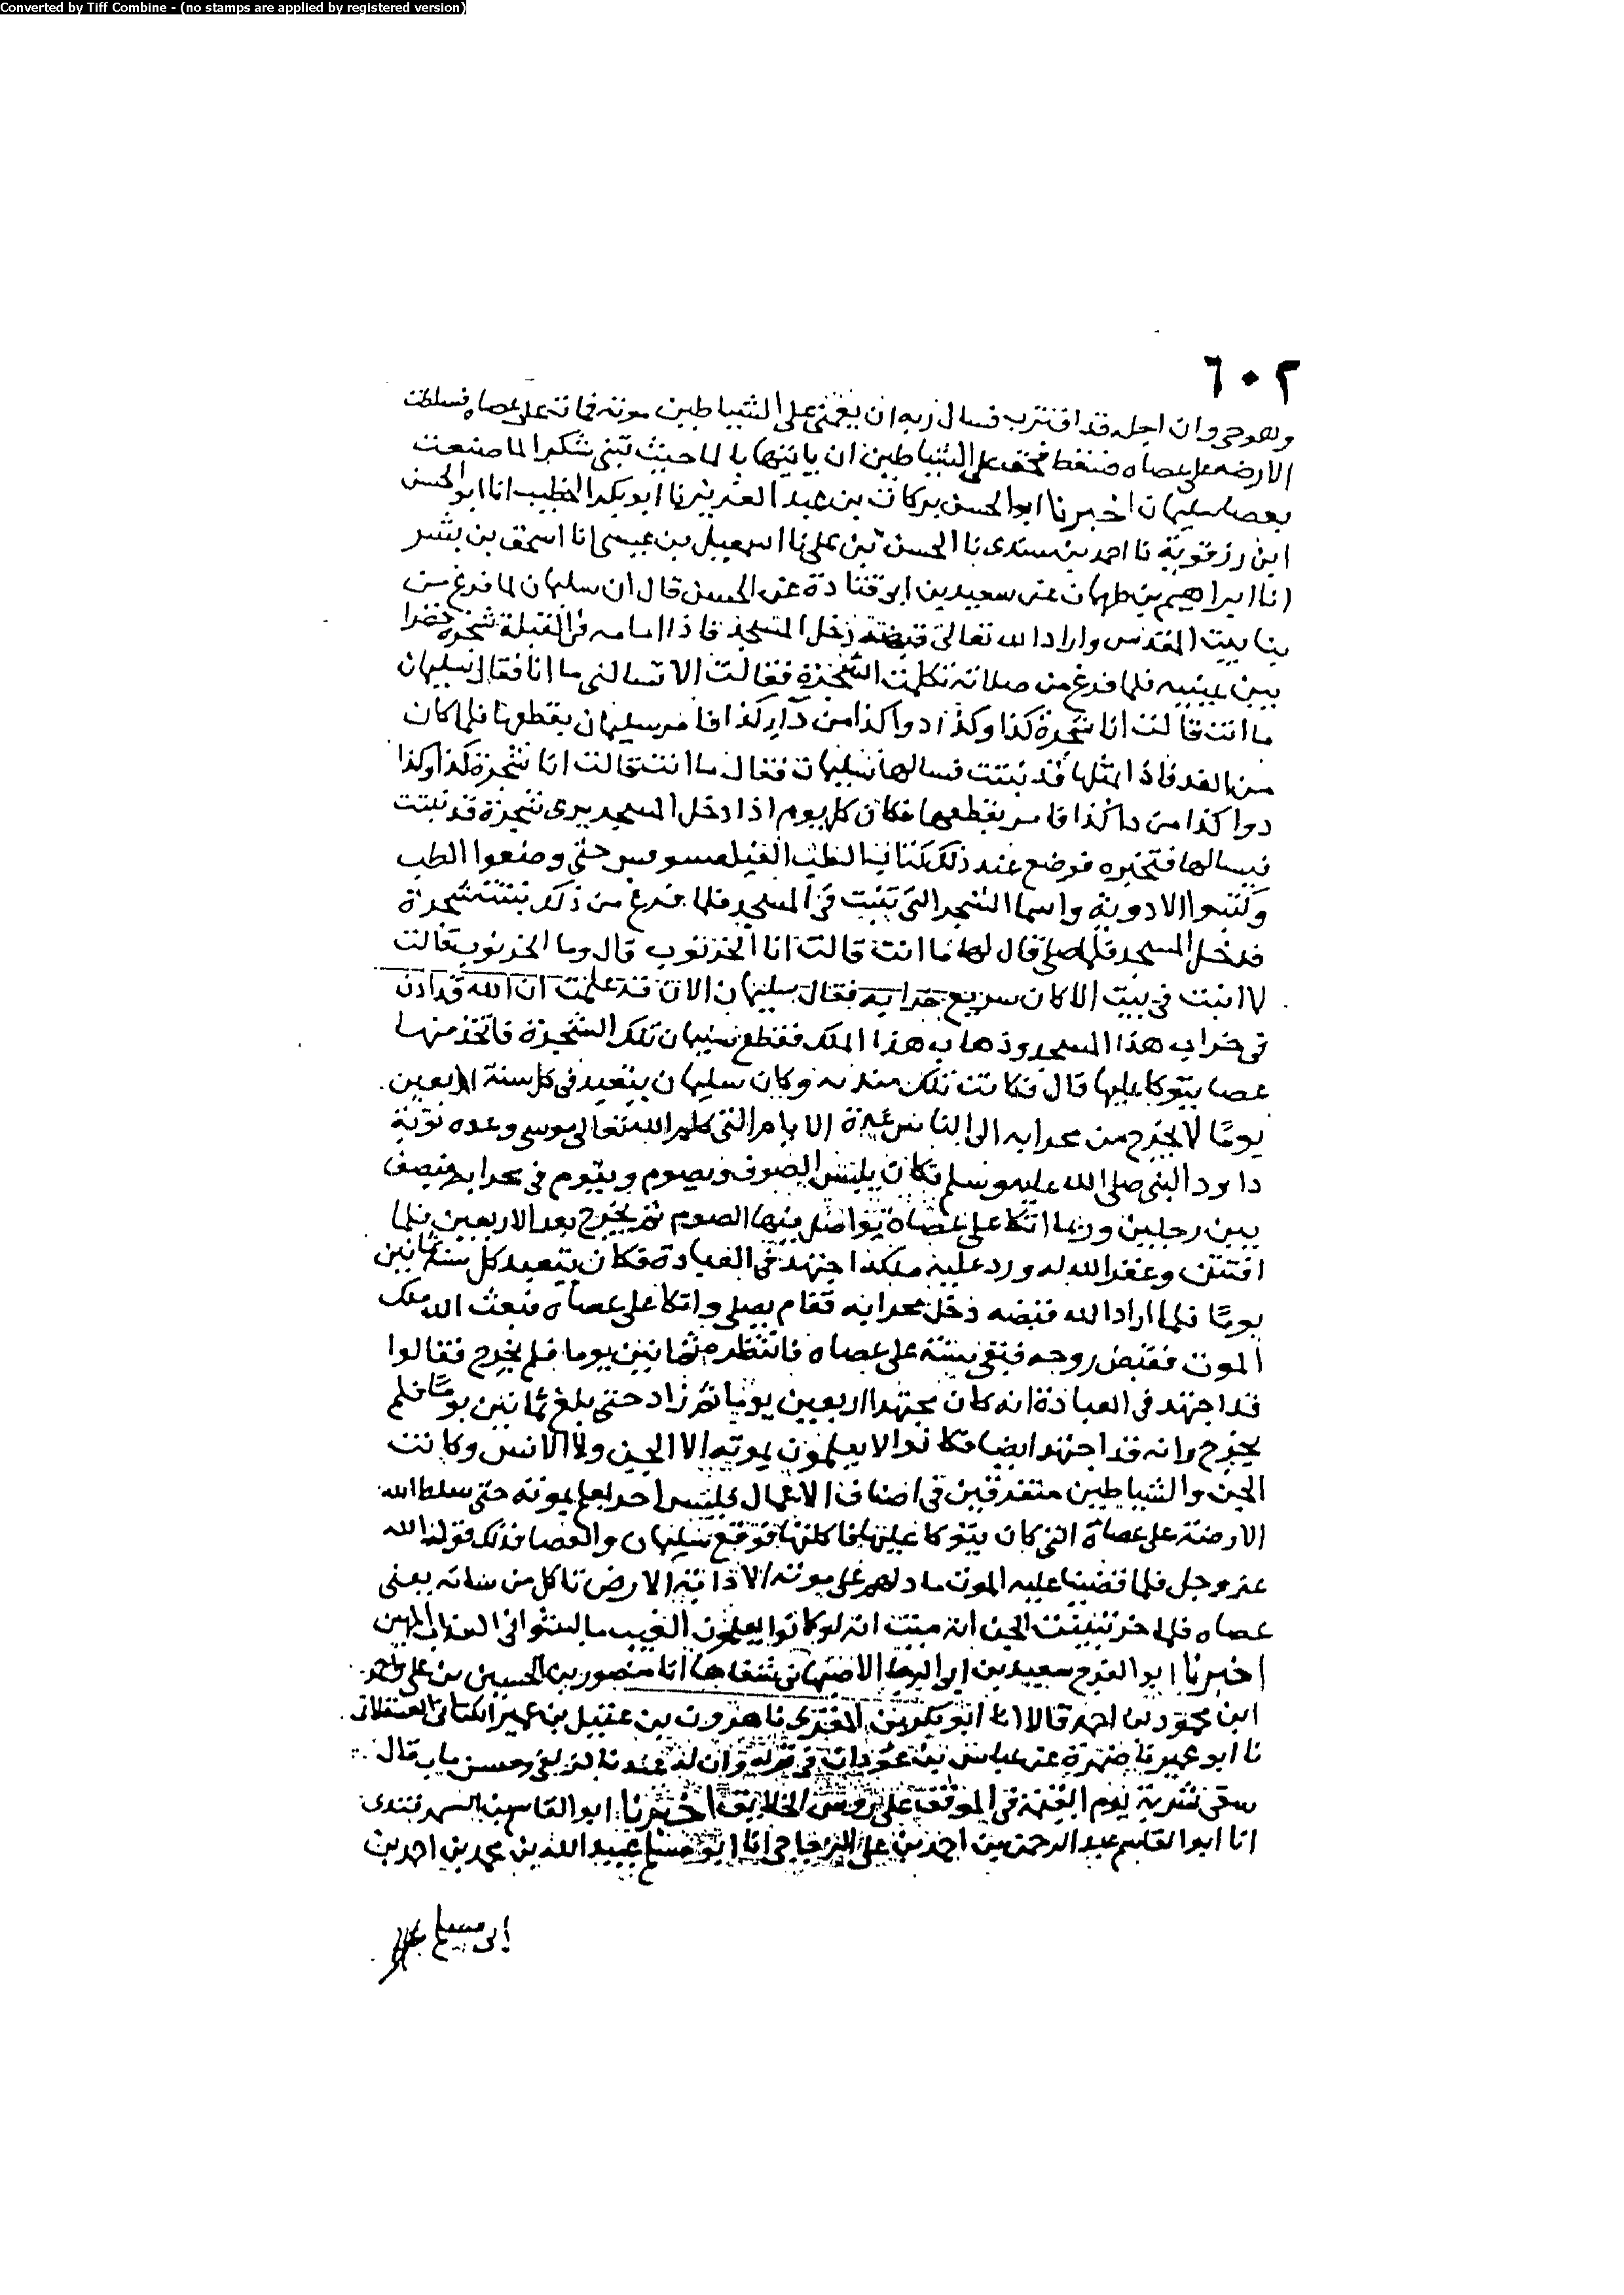 Converted by Tiff Combine - (no stamps are applied by registered version)
٦٠٢
وهو حى وان اجله قد اقترب فسال ربه ان يعمى على الشياطين موته فمات على عصاه فسلطت
الارضه على عصاه فسقط فحق على الشياطين ان ياتيها بالما حيث تبنى شكرا لما صنعت
بعصا سليمان اخبرنا ابو الحسن بركات بن عبد العزيز نا ابو بكر الخطيب انا ابو الحسن
ابن رزقوية نا احمد بن سندى نا الحسن بن على نا اسمعيل بن عيسى انا اسحق بن بشر
انا ابراهيم بن طهمان عن سعيد بن ابى قتادة عن الحسن قال ان سليمان لما فرغ من
بنا بيت المقدس واراد الله تعالى قبضه دخل المسجد فاذا امامه فى القبلة شجرة خضرا
بين عينيه فلما فرغ من صلاته تكلمت الشجرة فقالت الا تسالنى ما انا فقال سليمان
ما انت قالت انا شجرة كذا وكذا دوا كذا من دآ كذا فامر سليمان بقطعها فلما كان
من الغد فاذا مثلها قد نبتت فسالها سليمان فقال ما انت قالت انا شجرة كذا وكذا
دوا كذا من دا كذا فامر بقطعها فكان كل يوم اذا دخل المسجد يرى شجرة قد نبتت
فيسالها فتخبره فوضع عند ذلك كتاب الطب حتى وضعوا الطب
وكتبوا الادوية واسما الشجر التى تنبت فى المسجد فلما فرغ من ذلك نبتت شجرة
فدخل المسجد فلما صلى قال لها ما انت قالت انا الخرنوب قال وما الخرنوب قالت
لا انبت فى بيت الا كان سريع خرابه فقال سليمان الان قد علمت ان الله قد اذن
فى خراب هذا المسجد وذهاب هذا الملك فقطع سليمان تلك الشجرة فاتخذ منها
عصا يتوكا عليها قال فكانت تلك وكان سليمان يتعبد فى كل سنة اربعين
يومًا لا يخرج من محرابه الى الناس الايام التى كلم الله تعالى موسى وعده توبة
داود النبى صلى الله عليه وسلم فكان يلبس الصوف ويصوم ويقوم فى محرابه فيصف
بين رجلين وربما اتكا على عصاه يواصل فيها الصوم ثم يخرج بعد الاربعين فلما
افتتن وغفر الله له ورد عليه ملكه اجتهد فى العبادة فكان يتعبد كل سنة ثمانين
يومًا فلما اراد الله قبضه دخل محرابه فقام يصلى واتكا على عصاه فبعث الله ملك
الموت فقبض روحه فبقى على عصاه فانتظره ثمانين يوما فلم يخرج فقالوا
قد اجتهد فى العبادة انه كان مجتهدا اربعين يوما ثم زاد حتى بلغ ثمانين يومًا فلم
يخرج وانه قد اجتهد ايضا فكانوا لا يعلمون بموته لا الجن ولا الانس وكانت
الجن والشياطين متفرقين فى اصناف الاعمال فليس احد يعلم بموته حتى سلط الله
الارضة على عصاه التى كان يتوكا عليها فاكلتها فوقع سليمان والعصا فذلك قول الله
عز وجل فلما قضينا عليه الموت ما دلهم على موته الا دابة الارض تاكل من منساته يعنى
عصاه فلما خر تبينت الجن انه ميت انه لو كانوا يعلمون الغيب ما لبثوا فى العذاب المهين
اخبرنا ابو الفرج سعيد بن ابى الرجا الاصبهانى شفاها انا منصور بن الحسين بن على واحمد
ابن محمود بن احمد قالا انا ابو بكر بن المقرى نا هرون بن عقيل بن عمير الكنانى العسقلانى
نا ابو عمير نا ضمرة عن عباس بن عمودان فى قوله وان له عندنا لزلفى وحسن ماب قال
سقى شربة يوم القيمة فى الموقف على رؤس الخلايق اخبرنا ابو القاسم بن السمرقندى
انا ابو القاسم عبد الرحمن بن احمد بن على الزجاجى انا ابو مسلم عبيد الله بن محمد بن احمد بن
ابى مسلم